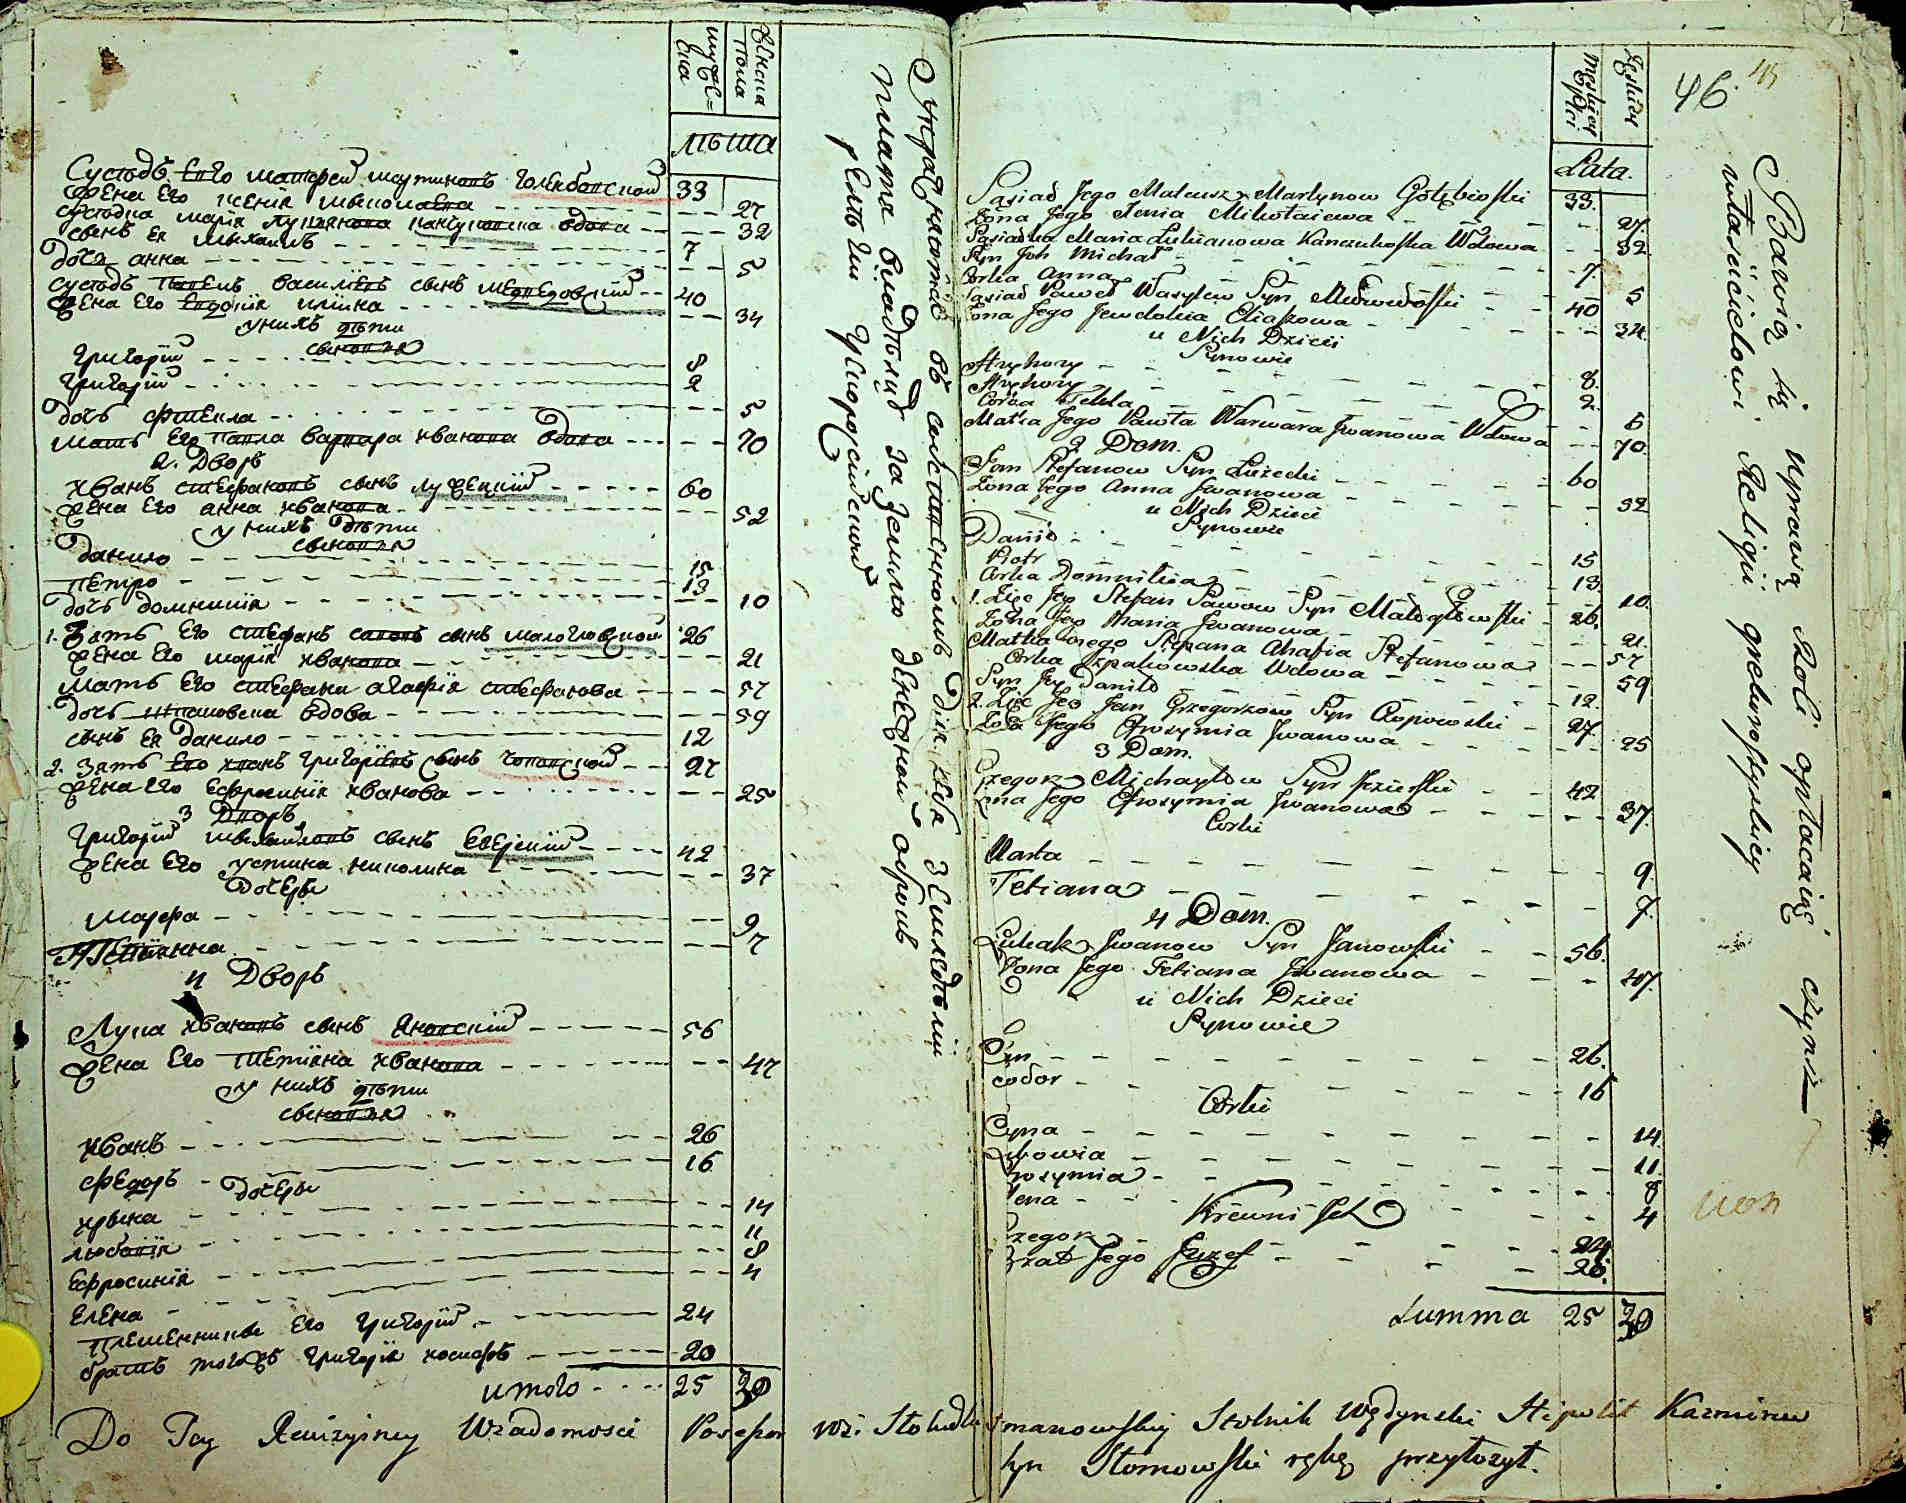 мужеска
женска пола
лѣта
Сусѣдъ Его матфей мартиновъ голембовской 33
жена Его ксенія миколаева 27
сусѣдка марія лукіянова канчуковска вдова 32
сынъ Ея михаилъ 7
дочь анна 5
сусѣдъ павелъ василіевъ сынъ медведовскій 40
жена Его Евдокія иляшка 34
у нихъ дѣти
сыновья
григорій 8
григорій 2
дочь фтекла 5
мать Его павла варвара иванова вдова 70
2. Дворъ
иванъ стефановъ сынъ лужецкій 60
жена Его анна иванова 52
у нихъ дѣти
сыновья
данило 15
петро 13
дочь домникія 10
1. Зять Его стефанъ савовъ сынъ малогловской 26
жена Его марія иванова 21
мать Его стефана агафія стефанова 57
дочь шпаковска вдова 59
сынъ Ея данило 12
2. Зять Его иванъ григоріевъ сынъ чоповской 27
жена Его Ефросинія иванова 25
3 Дворъ
григорій михайловъ сынъ Езерскій 42
жена Его устина николина 37
дочеры
марфа 9
Тетіянна 7
4 Дворъ
Лука ивановъ сынъ Яновскій 56
жена Его тетіяна иванова 47
у нихъ дѣти
сыновья
иванъ 26
федоръ 16
дочеры
ирына 14
любовія 11
Ефросинія 8
Елена 4
племенники Его григорій 24
братъ того жъ григорія иосифъ 20
итого 25 30
денежной оброкъ
46
45
Męskiey Płci
Żeńskiey
Lata.
Sąsiad Jego Mateusz Martynow Gołębiofski 33.
Żona Jego Xenia Mikołaiewa 27.
Sąsiadka Maria Lukianowa Kanczukofska Wdowa 32
Syn Jey Michał 7
Corka Anna 5
Sąsiad Paweł Wasylew Syn Medwedofski 40
Żona Jego Jewdokia Eliaszowa 34.
u Nich Dzieci
Synowie
Hryhory 8.
Hryhory 2.
Corka Tekla 5
Matka Jego Pawła Warwara Jwanowa Wdowa 70
2 Dom.
Jan Stefanow Syn Łużecki 60
Żona Jego Anna Jwanowa 52
u Nich Dzieci
Synowie
Daniło 15
Piotr 13.
Corka Domnikia 10.
1. Zięć Jego Stefan Sawow Syn Małogłowski 26.
Żona Jego Maria Jwanowa 21.
Matka onego Stepana Ahafia Stefanowa 57
Corka Szpakowska Wdowa 59
Syn Jey Daniło 12.
2. Zięć Jego Jan Grzegorzow Syn Czopowski 27.
Żona Jego Efrosymia Jwanowa 25
3 Dom.
Grzegorz Michayłow Syn Jezierski 42
Żona Jego Efrosymia Jwanowa 37.
Corki
Marta 9.
Tetiana 7.
4 Dom.
Lukasz Jwanow Syn Janowski 56.
Żona Jego Tetiana Jwanowa 47.
u Nich Dzieci
Synowie
Jan 26.
Teodor 16
Corki
Iryna 14.
Lubowia 11.
Efrosymia 8
Elena 4
Krewni Jch
Grzegorz 24.
Brat Jego Juzef 20.
Summa 25 30
Bawią się uprawą Roli opłacaiąc czynsz
właścicielowi. Religii grekurossyiskiey
Do Tey Rewizyiney Wiadomosci Possessor wsi Stolnik Hipolit Kazmirow
syn Słomowski rękę przyłożył.